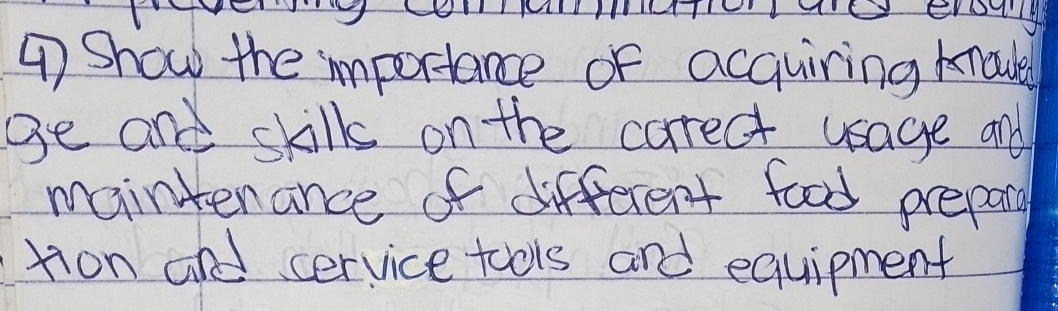 4) Show the importance of acquiring knowled
ge and skills on the correct usage and
maintenance of different food prepara
tion and service tools and equipment